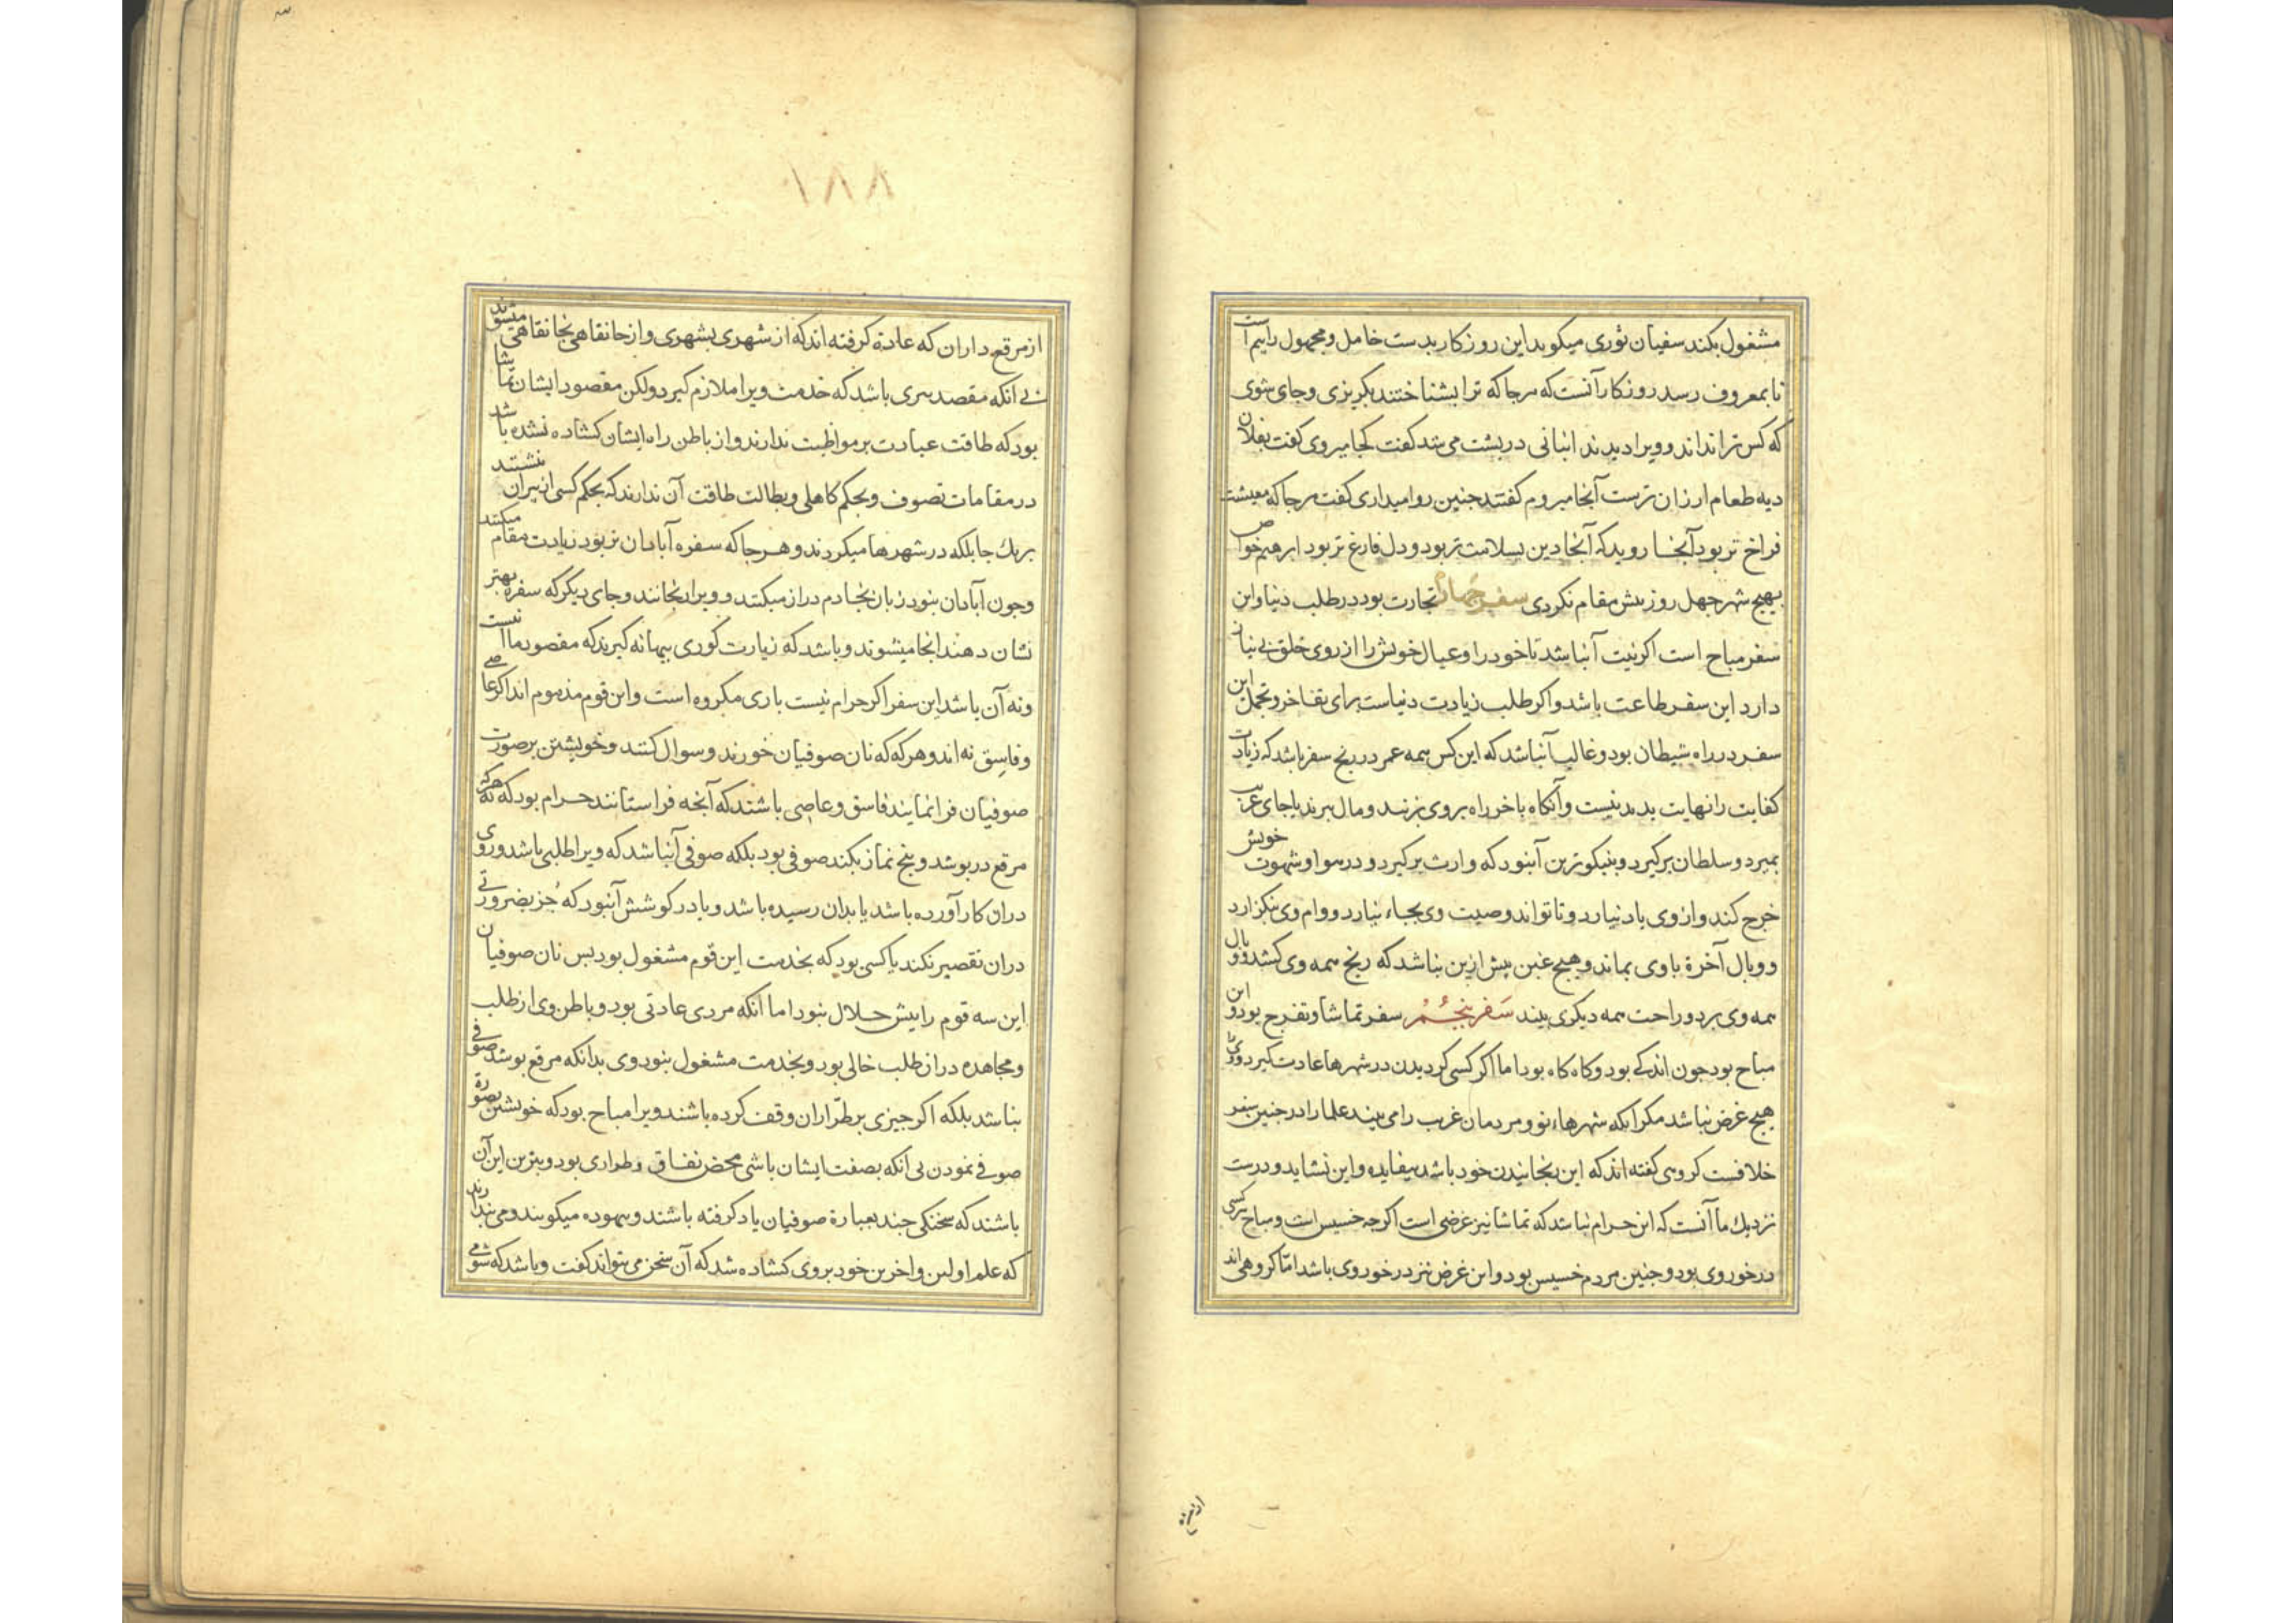 مشغول بکند سفیان ثوری میکوید این روزکار بدست خامل و مجهول را بیم است
تا بمعروف رسد روزکار آنست که هرجا که ترا بشناختند بکریزی و جای شوی
که کس ترا نداند و ویرا دیدند انبانی در بشت می شد کفت کجا میروی کفت بفلان
دیه طعام ارزان ترست آنجا میروم کفتند جنین روا میداری کفت هرجا که معیشت
فراخ تر بود آنجا روید که آنجا دین بسلامت تر بود و دل فارغ تر بود ابرهیم خواص
بهیج شهر جهل روز بیش مقام نکردی سفر جهارم تجارت بود در طلب دنیا و این
سفر مباح است اکر نیت آنباشد تا خود را و عیال خویش را از روی خلق بی نیاز
دارد این سفر طاعت باشد و اکر طلب زیادت دنیاست برای تفاخر و تجمل این
سفر در راه شیطان بود و غالب آنباشد که این کس همه عمر در رنج سفر باشد که زیادت
کفایت را نهایت بدید نیست و آنکاه باخر راه بروی بزنند و مال ببرند یا جای غریب
بمیرد و سلطان برکیرد و نیکوترین آنبود که وارث برکیرد و در هوا و شهوت خویش
خرج کند و از وی یاد نیارد و تا تواند وصیت وی بجاء نیارد و وام وی نکزارد
و وبال آخرة با وی بماند و هیج غبن بیش ازین نباشد که رنج همه وی کشد و وبال
همه وی برد و راحت همه دیکری بیند سفر بنجم سفر تماشا و تفرج بود و این
مباح بود جون اندکی بود و کاه کاه بود اما اکر کسی کردیدن در شهرها عادت کیرد و ویرا
هیج غرض نباشد مکر آنکه شهرهاء نو و مردمان غریب را می بیند علما را در جنین سفر
خلافست کروهی کفته اند که این رنجانیدن خود باشد بیفایده و این نشاید و درست
نزدیك ما آنست که این حرام نباشد که تماشا نیز غرضی است اکرجه خسیس است و مباح هرکسی
درخور وی بود و جنین مردم خسیس بود و این غرض نیز درخور وی باشد امّا کروهی اند
از مرقع داران که عادة کرفته اند که از شهری بشهری و از خانقاهی بخانقاهی میشوند
بی آنکه مقصد بیری باشد که خدمت ویرا ملازم کیرد ولکن مقصود ایشان تماشا
بود که طاقت عبادت بر مواظبت ندارند و از باطن راه ایشان کشاده نشده باشد
در مقامات تصوف و بحکم کاهلی و بطالت طاقت آن ندارند که بحکم کسی از بیران نشینند
بریك جا بلکه در شهرها میکردند و هرجا که سفره آبادان تر بود زیادت مقام میکنند
و جون آبادان نبود زبان بخادم دراز میکنند و ویرا برنجانند و جای دیکر که سفره بهتر
نشان دهند انجا میشوند و باشد که زیارت کوری بهانه کیرند که مقصود ما نیست
و نه آن باشد این سفر اکر حرام نیست باری مکروه است و این قوم مذموم اند اکر عاصی
و فاسق نه اند و هرکه که نان صوفیان خورند و سوال کنند و خویشتن بر صورت
صوفیان فرا نمایند فاسق و عاصی باشند که آنجه فراستانند حرام بود که نه هرکه
مرقع دربوشد و بنج نماز بکند صوفی بود بلکه صوفی آنباشد که ویرا طلبی باشد و روی
دران کار آورده باشد یا بدان رسیده باشد و یا در کوشش آنبود که جز بضرورتی
دران تقصیر نکند یا کسی بود که بخدمت این قوم مشغول بود بس نان صوفیان
این سه قوم را بیش حلال نبود اما آنکه مردی عادتی بود و باطن وی از طلب
و مجاهده دران طلب خالی بود و بخدمت مشغول نبود وی بدانکه مرقع بوشد صوفی
نباشد بلکه اکر جیزی بر طرّاران وقف کرده باشند ویرا مباح بود که خویشتن بصورة
صوفی نمودن بی آنکه بصفت ایشان باشی محض نفاق و طراری بود و بترین این آن
باشند که سخنکی جند بعبارة صوفیان یاد کرفته باشند و بیهوده میکویند و می بندارند
که علم اولین و اخرین خود بروی کشاده شد که آن سخن می بتواند کفت و باشد که شومی